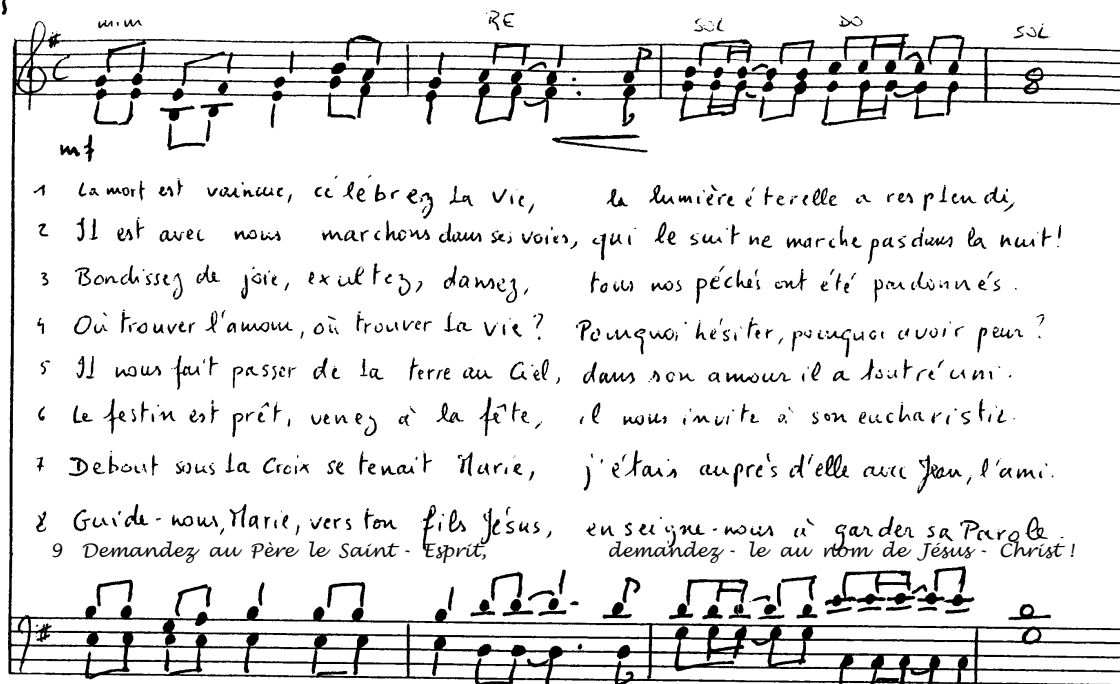 mim RE SOL DO SOL
mf
1 La mort est vaincue, célébrez la vie, la lumière éterelle a resplendi,
2 Il est avec nous marchons dans ses voies, qui le suit ne marche pas dans la nuit!
3 Bondissez de joie, exultez, dansez, tous nos péchés ont été pardonnés.
4 Où trouver l'amour, où trouver la vie? Pourquoi hésiter, pourquoi avoir peur?
5 Il nous fait passer de la terre au Ciel, dans son amour il a tout réuni.
6 Le festin est prêt, venez à la fête, il nous invite à son eucharistie.
7 Debout sous la Croix se tenait Marie, j'étais auprès d'elle avec Jean, l'ami.
8 Guide-nous, Marie, vers ton fils Jésus, enseigne-nous à garder sa Parole.
9 Demandez au Père le Saint - Esprit, demandez - le au nom de Jésus - Christ !